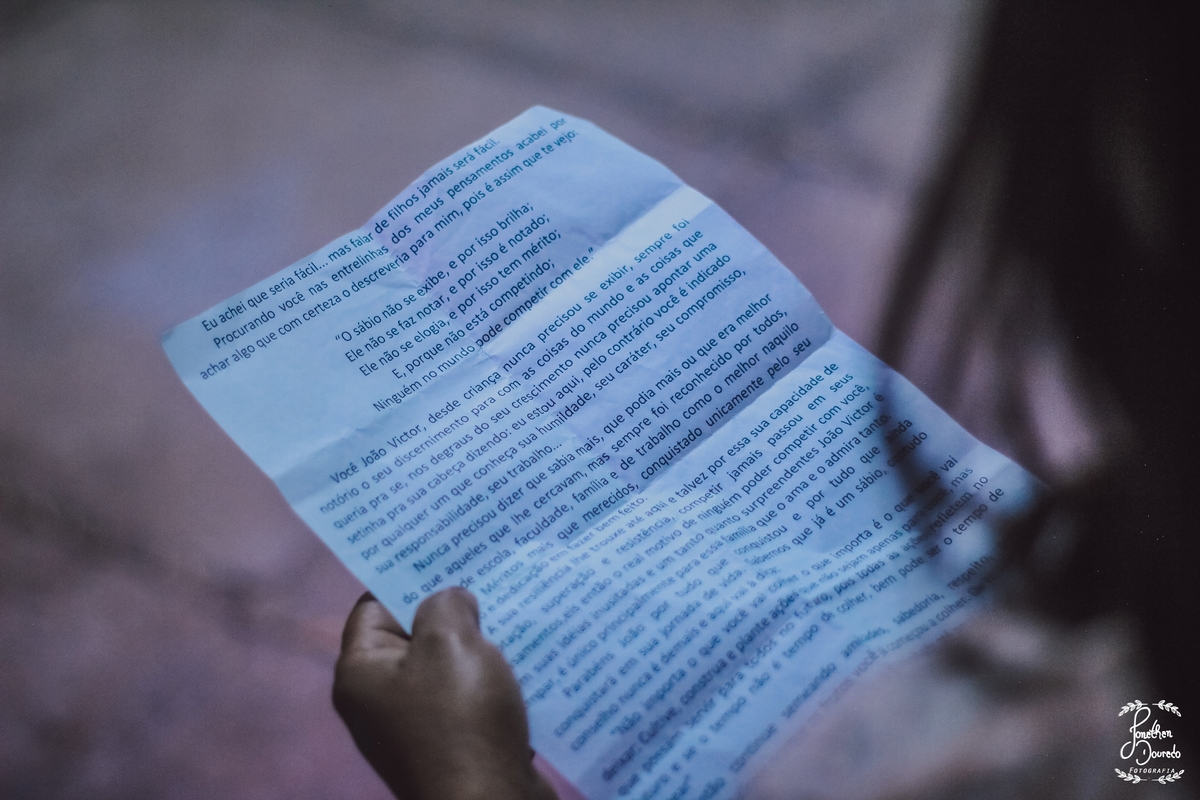 Eu achei que seria fácil... mas falar de filhos jamais será fácil.
Procurando você nas entrelinhas dos meus pensamentos acabei por
achar algo que com certeza o descreveria para mim, pois é assim que te vejo:
"O sábio não se exibe, e por isso brilha;
Ele não se faz notar, e por isso é notado;
Ele não se elogia, e por isso tem mérito;
E, porque não está competindo;
Ninguém no mundo pode competir com ele."
Você João Victor, desde criança nunca precisou se exibir, sempre foi
notório o seu discernimento para com as coisas do mundo e as coisas que
queria pra se, nos degraus do seu crescimento nunca precisou apontar uma
setinha pra sua cabeça dizendo: eu estou aqui, pelo contrário você é indicado
por qualquer um que conheça sua humildade, seu caráter, seu compromisso,
sua responsabilidade, seu trabalho...
Nunca precisou dizer que sabia mais, que podia mais ou que era melhor
do que aqueles que lhe cercavam, mas sempre foi reconhecido por todos,
de escola, faculdade, família e de trabalho como o melhor naquilo
que merecidos, conquistado unicamente pelo seu
dedicação em fazer bem feito.
sua resiliência lhe trouxe até aqui e talvez por essa sua capacidade de
superação e resistência, competir jamais passou em seus
eis então o real motivo de ninguém poder competir com você,
suas ideias inusitadas e um tanto quanto surpreendentes João Victor é
é único principalmente para essa família que o ama e o admira tanto.
Parabéns João por tudo que conquistou e por tudo que ainda
conquistará em sua jornada de vida, sabemos que já é um sábio, contudo
conselho nunca é demais e aqui vai a dica:
"Não importa o que você é, o que importa é o que você vai
deixar: Cultive, construa e plante ações que não sejam apenas para mas
que possam servir para todos no futuro, pois todas as refletem no
e se o tempo não é tempo de colher, bem pode ser o tempo de
semeando amizades, sabedoria, respeito
você começa a colher
Jonathan
Dourado
FOTOGRAFIA